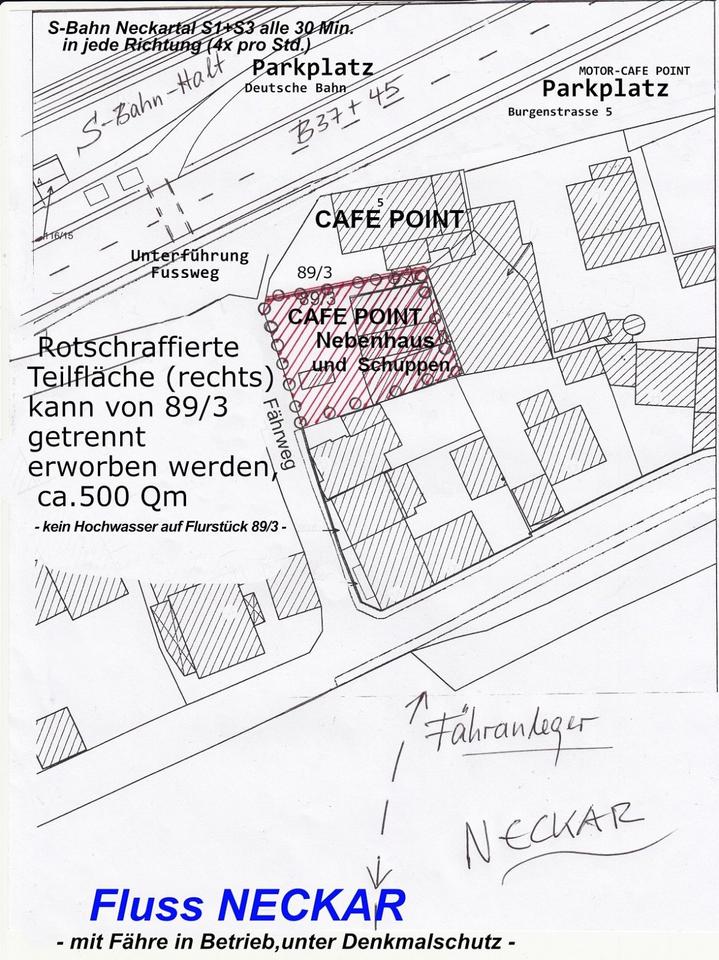 S-Bahn Neckartal S1+S3 alle 30 Min.
in jede Richtung (4x pro Std.)
Parkplatz
Deutsche Bahn
S-Bahn-Halt
B37+45
MOTOR-CAFE POINT
Parkplatz
Burgenstrasse 5
5
CAFE POINT
116/15
Unterführung
Fussweg
89/3
89/3
CAFE POINT
Nebenhaus
und Schuppen
Rotschraffierte
Teilfläche (rechts)
kann von 89/3
getrennt
erworben werden,
ca.500 Qm
- kein Hochwasser auf Flurstück 89/3 -
Fährweg
Fähranleger
NECKAR
Fluss NECKAR
- mit Fähre in Betrieb,unter Denkmalschutz -